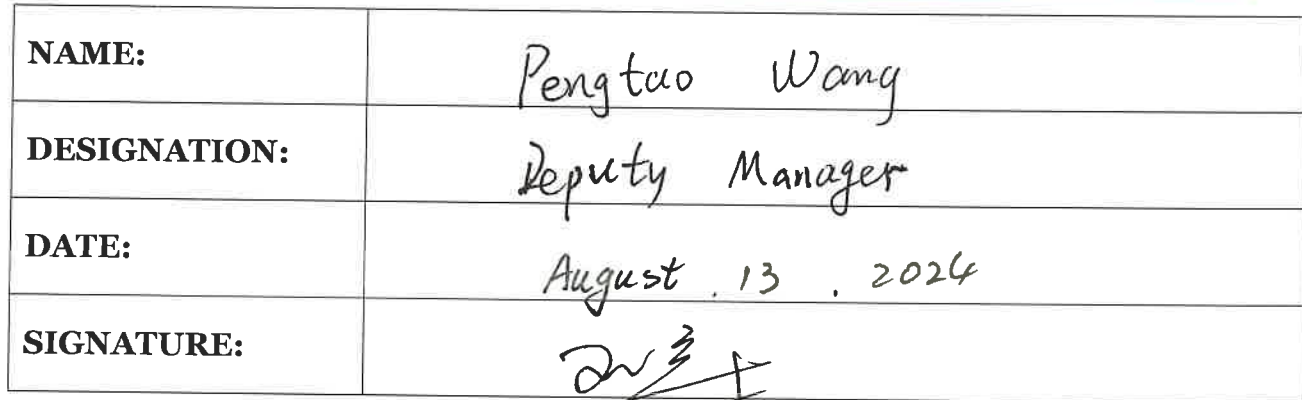 NAME: Pengtao Wang
DESIGNATION: Deputy Manager
DATE: August . 13 . 2024
SIGNATURE: